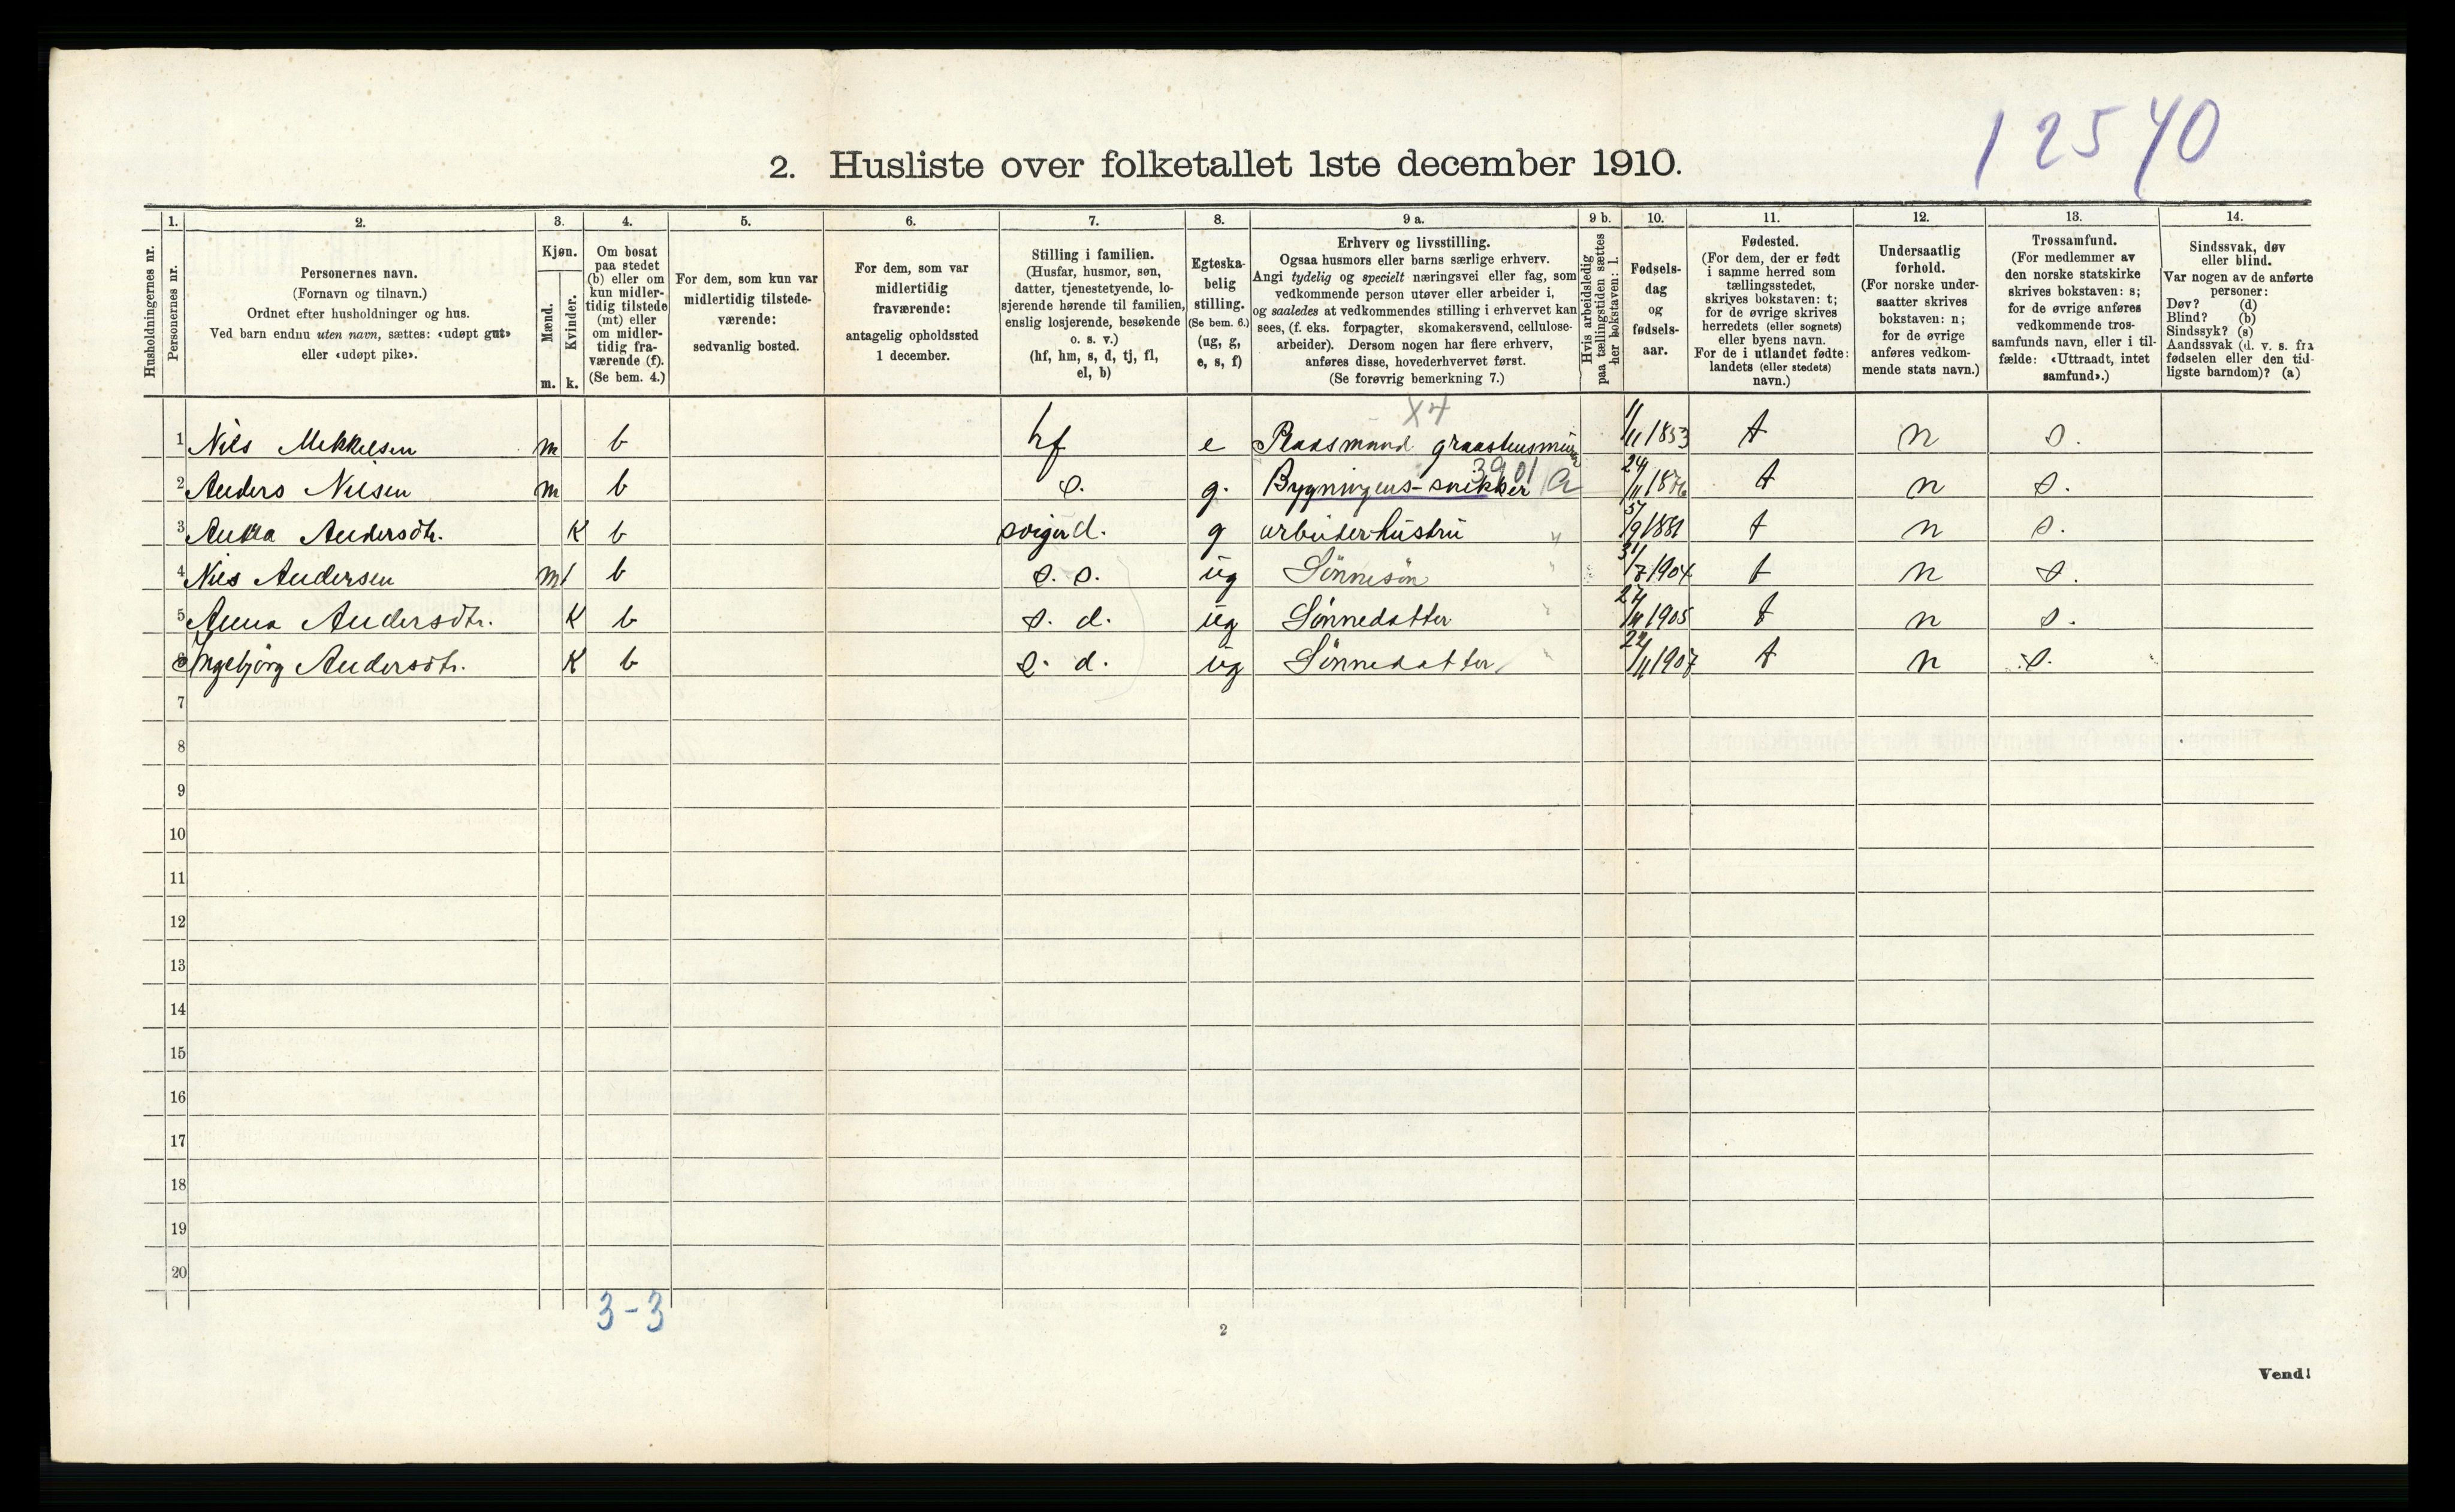 12540
2. Husliste over folketallet 1ste december 1910.
Husholdningernes nr.
1.
Personernes nr.
2.
Personernes navn.
(Fornavn og tilnavn.)
Ordnet efter husholdninger og hus.
Ved barn endnu uten navn, sættes: «udøpt gut»
eller «udøpt pike».
3.
Kjøn.
Mænd.
Kvinder.
m. k.
4.
Om bosat
paa stedet
(b) eller om
kun midler-
tidig tilstede
(mt) eller
om midler-
tidig fra-
værende (f).
(Se bem. 4.)
5.
For dem, som kun var
midlertidig tilstede-
værende:
sedvanlig bosted.
6.
For dem, som var
midlertidig
fraværende:
antagelig opholdssted
1 december.
7.
Stilling i familien.
(Husfar, husmor, søn,
datter, tjenestetyende, lo-
sjerende hørende til familien,
enslig losjerende, besøkende
o. s. v.)
(hf, hm, s, d, tj, fl,
el, b)
8.
Egteska-
belig
stilling.
(Se bem. 6.)
(ug, g,
e, s, f)
9 a.
Erhverv og livsstilling.
Ogsaa husmors eller barns særlige erhverv.
Angi tydelig og specielt næringsvei eller fag, som
vedkommende person utøver eller arbeider i,
og saaledes at vedkommendes stilling i erhvervet kan
sees, (f. eks. forpagter, skomakersvend, cellulose-
arbeider). Dersom nogen har flere erhverv,
anføres disse, hovederhvervet først.
(Se forøvrig bemerkning 7.)
9 b.
Hvis arbeidsledig
paa tællingstiden sættes
her bokstaven: l.
10.
Fødsels-
dag
og
fødsels-
aar.
11.
Fødested.
(For dem, der er født
i samme herred som
tællingsstedet,
skrives bokstaven: t;
for de øvrige skrives
herredets (eller sognets)
eller byens navn.
For de i utlandet fødte:
landets (eller stedets)
navn.)
12.
Undersaatlig
forhold.
(For norske under-
saatter skrives
bokstaven: n;
for de øvrige
anføres vedkom-
mende stats navn.)
13.
Trossamfund.
(For medlemmer av
den norske statskirke
skrives bokstaven: s;
for de øvrige anføres
vedkommende tros-
samfunds navn, eller i til-
fælde: «Uttraadt, intet
samfund».)
14.
Sindssvak, døv
eller blind.
Var nogen av de anførte
personer:
Døv? (d)
Blind? (b)
Sindssyk? (s)
Aandssvak (d. v. s. fra
fødselen eller den tid-
ligste barndom)? (a)
X4
1 Nils Mekkelsen m b hf e Plassmand graastensmurer 1/11 1853 t n s.
3901 a
2 Anders Nilsen m b s. g. Bygningens-snikker 24/11 1876 t n s.
3 Anna Andersdtr. K b svigerd. g arbeiderhustru " 5/9 1881 t n s.
4 Nils Andersen m b s. s. ug Sönnesön " 31/7 1904 t n s.
5 Anna Andersdtr. K b s. d. ug Sönnedatter " 1905 t n s.
6 Ingebjörg Andersdtr. K b s. d. ug Sönnedatter " 22/11 1907 t n s.
7
8
9
10
11
12
13
14
15
16
17
18
19
20
3-3
2
Vend!